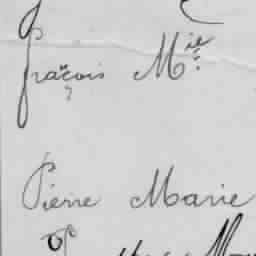 Fraçois M^ie.
Pierre Marie